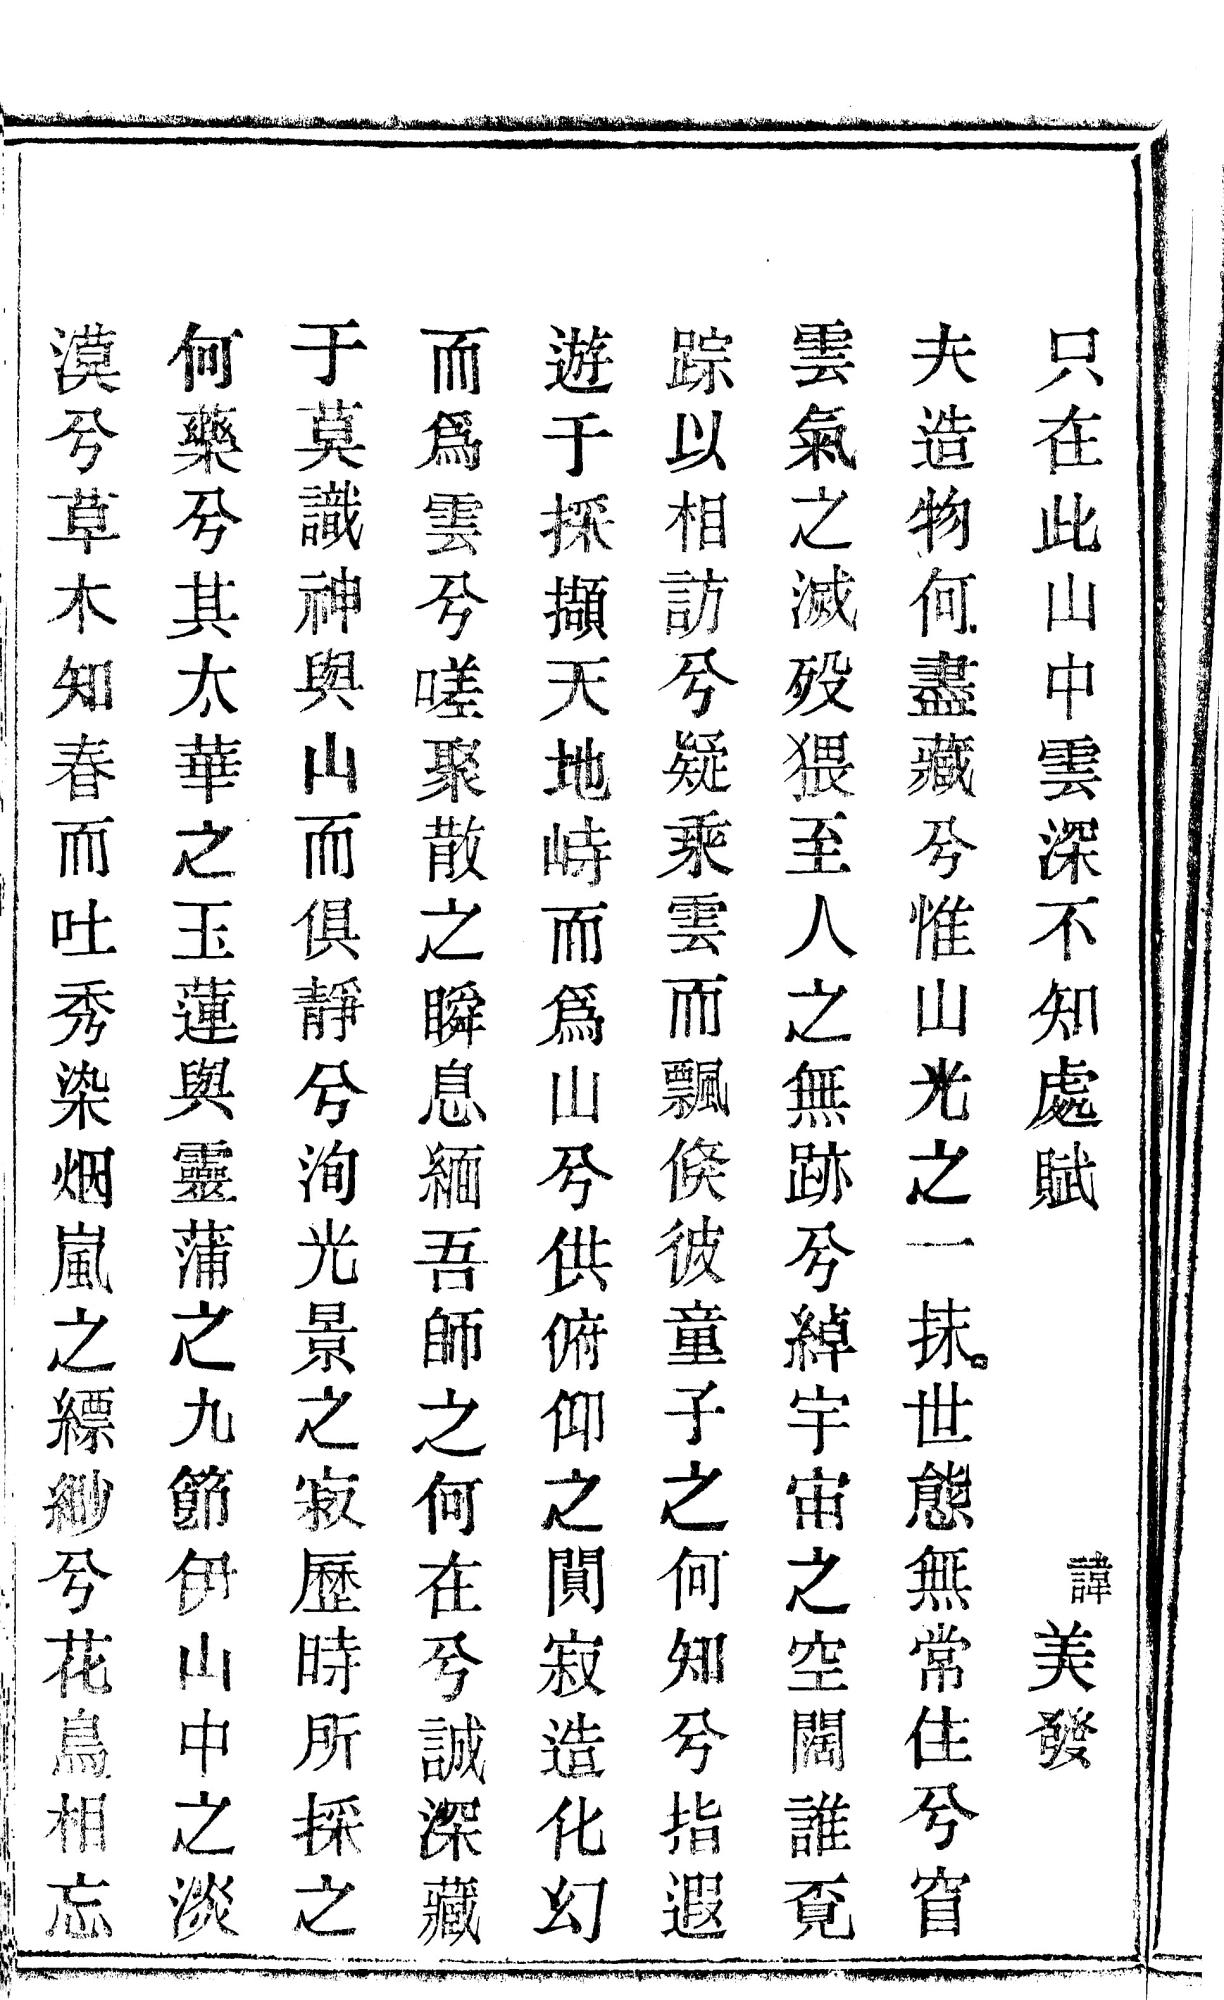 只在此山中雲深不知處賦 諱美發
夫造物何盡藏兮惟山光之一抹世態無常住兮窅
雲氣之滅歿猥至人之無跡兮綽宇宙之空闊誰覔
踪以相訪兮疑乘雲而飄倐彼童子之何知兮指遐
遊于採擷天地峙而爲山兮供俯仰之間寂造化幻
而爲雲兮嗟聚散之瞬息緬吾師之何在兮誠深藏
于莫識神與山而俱靜兮洵光景之寂歷時所採之
何藥兮其太華之玉蓮與靈蒲之九節伊山中之淡
漠兮草木知春而吐秀染烟嵐之縹緲兮花鳥相忘